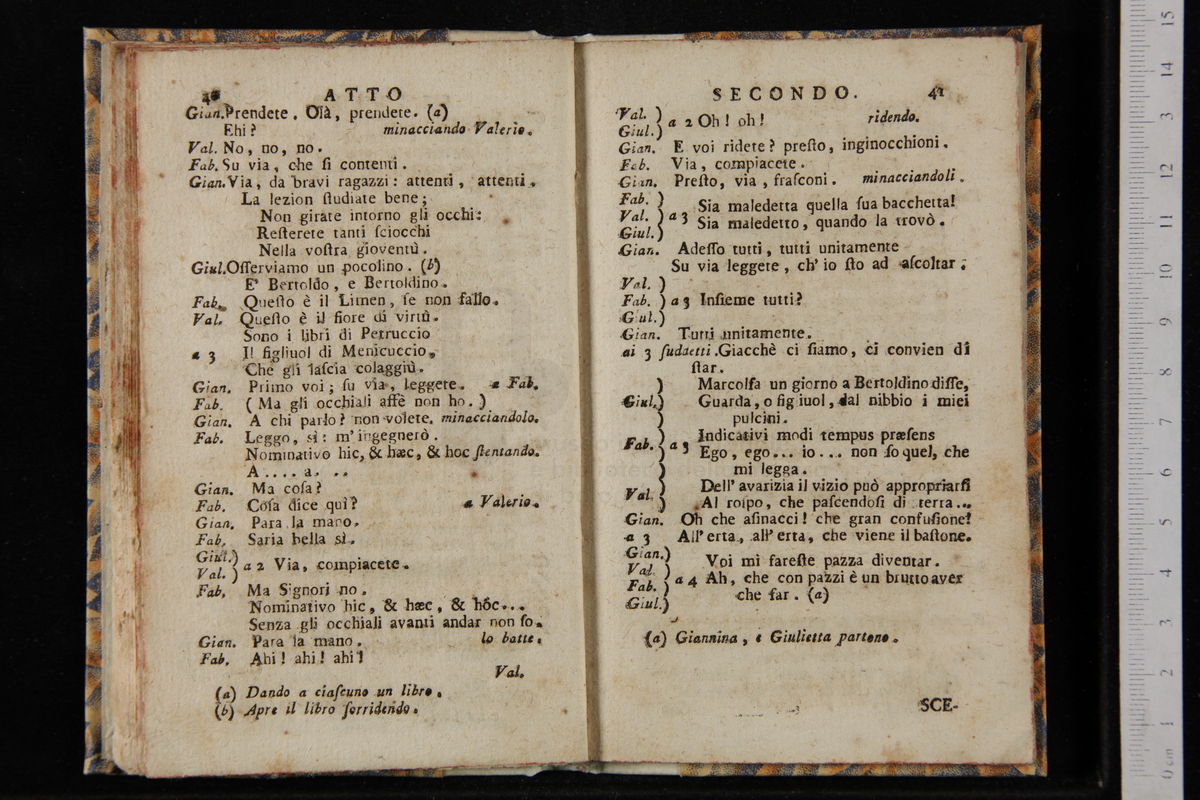 40 ATTO
Gian. Prendete. Olà, prendete. (a)
Ehi? minacciando Valerio.
Val. No, no, no.
Fab. Su via, che ſi contenti.
Gian. Via, da bravi ragazzi: attenti, attenti.
La lezion ſtudiate bene;
Non girate intorno gli occhi:
Reſterete tanti ſciocchi
Nella voſtra gioventù.
Giul. Oſſerviamo un pocolino. (b)
E' Bertoldo, e Bertoldino.
Fab. Queſto è il Limen, ſe non fallo.
Val. Queſto è il fiore di virtù.
Sono i libri di Petruccio
a 3 Il figliuol di Menicuccio,
Che gli laſcia colaggiù.
Gian. Primo voi; ſu via, leggete. a Fab.
Fab. (Ma gli occhiali affè non ho.)
Gian. A chi parlo? non volete. minacciandolo.
Fab. Leggo, sì: m'ingegnerò.
Nominativo hic, & hæc, & hoc ſtentando.
A.... a. ..
Gian. Ma coſa?
Fab. Coſa dice quì? a Valerio.
Gian. Para la mano.
Fab. Saria bella sì.
Giul.)
Val. ) a 2 Via, compiacete.
Fab. Ma Signori no.
Nominativo hic, & hæc, & hôc...
Senza gli occhiali avanti andar non ſo.
Gian. Para la mano. lo batte.
Fab. Ahi! ahi! ahi!
Val.
(a) Dando a ciaſcuno un libro.
(b) Apre il libro ſorridendo.
SECONDO. 41
Val. )
Giul.) a 2 Oh! oh! ridendo.
Gian. E voi ridete? preſto, inginocchioni.
Fab. Via, compiacete.
Gian. Preſto, via, fraſconi. minacciandoli.
Fab. ) Sia maledetta quella ſua bacchetta!
Val. ) a 3 Sia maledetto, quando la trovò.
Giul.)
Gian. Adeſſo tutti, tutti unitamente
Su via leggete, ch' io ſto ad aſcoltar.
Val. )
Fab. ) a 3 Inſieme tutti?
Giul.)
Gian. Tutti unitamente.
ai 3 ſudetti. Giacchè ci ſiamo, ci convien di
ſtar.
) Marcolfa un giorno a Bertoldino diſſe,
Giul.) Guarda, o figliuol, dal nibbio i miei
) pulcini.
Fab. ) a 3 Indicativi modi tempus præſens
) Ego, ego... io... non ſo quel, che
) mi legga.
Val. ) Dell' avarizia il vizio può appropriarſi
) Al roſpo, che paſcendoſi di terra...
Gian. Oh che aſinacci! che gran confuſione!
a 3 All' erta, all' erta, che viene il baſtone.
Gian.) Voi mi fareſte pazza diventar.
Val. )
Fab. ) a 4 Ah, che con pazzi è un brutto aver
Giul.) che far. (a)
(a) Giannina, e Giulietta partono.
SCE-